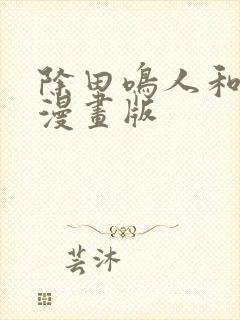 除田鳴人和
漫畫版
芸沐